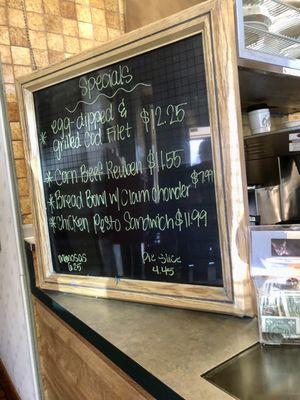 Specials
* egg-dipped &
grilled Cod Filet $12.25
* Corn Beef Reuben $11.55
* Bread Bowl w/ Clam Chowder $7.99
* Chicken Pesto Sandwich $11.99
Mimosas
6.25
Pie Slice
4.45